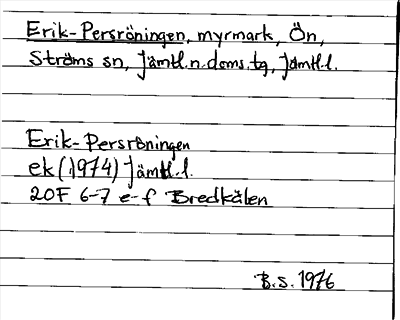 Erik-Persröningen, myrmark, Ön,
Ströms sn, Jämtl.n.doms.tg, Jämtl.l.
Erik-Persröningen
ek (1974) Jämtl.l.
20F 6-7 e-f Bredkälen
B.S. 1976